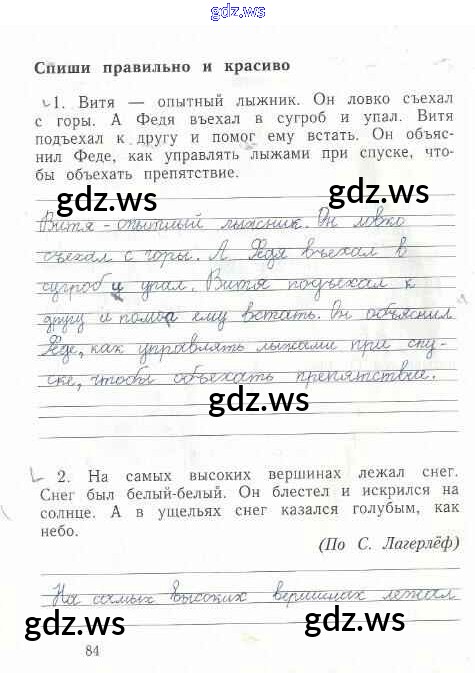 gdz.ws
Спиши правильно и красиво
1. Витя — опытный лыжник. Он ловко съехал
с горы. А Федя въехал в сугроб и упал. Витя
подъехал к другу и помог ему встать. Он объяс-
нил Феде, как управлять лыжами при спуске, что-
бы объехать препятствие.
gdz.ws gdz.ws
Витя - опытный лыжник. Он ловко
съехал с горы. А Федя въехал в
сугроб и упал. Витя подъехал к
другу и помог ему встать. Он объяснил
Феде, как управлять лыжами при спу-
ске, чтобы объехать препятствие.
gdz.ws
2. На самых высоких вершинах лежал снег.
Снег был белый-белый. Он блестел и искрился на
солнце. А в ущельях снег казался голубым, как
небо.
(По С. Лагерлёф)
На самых высоких вершинах лежал
gdz.ws gdz.ws
84